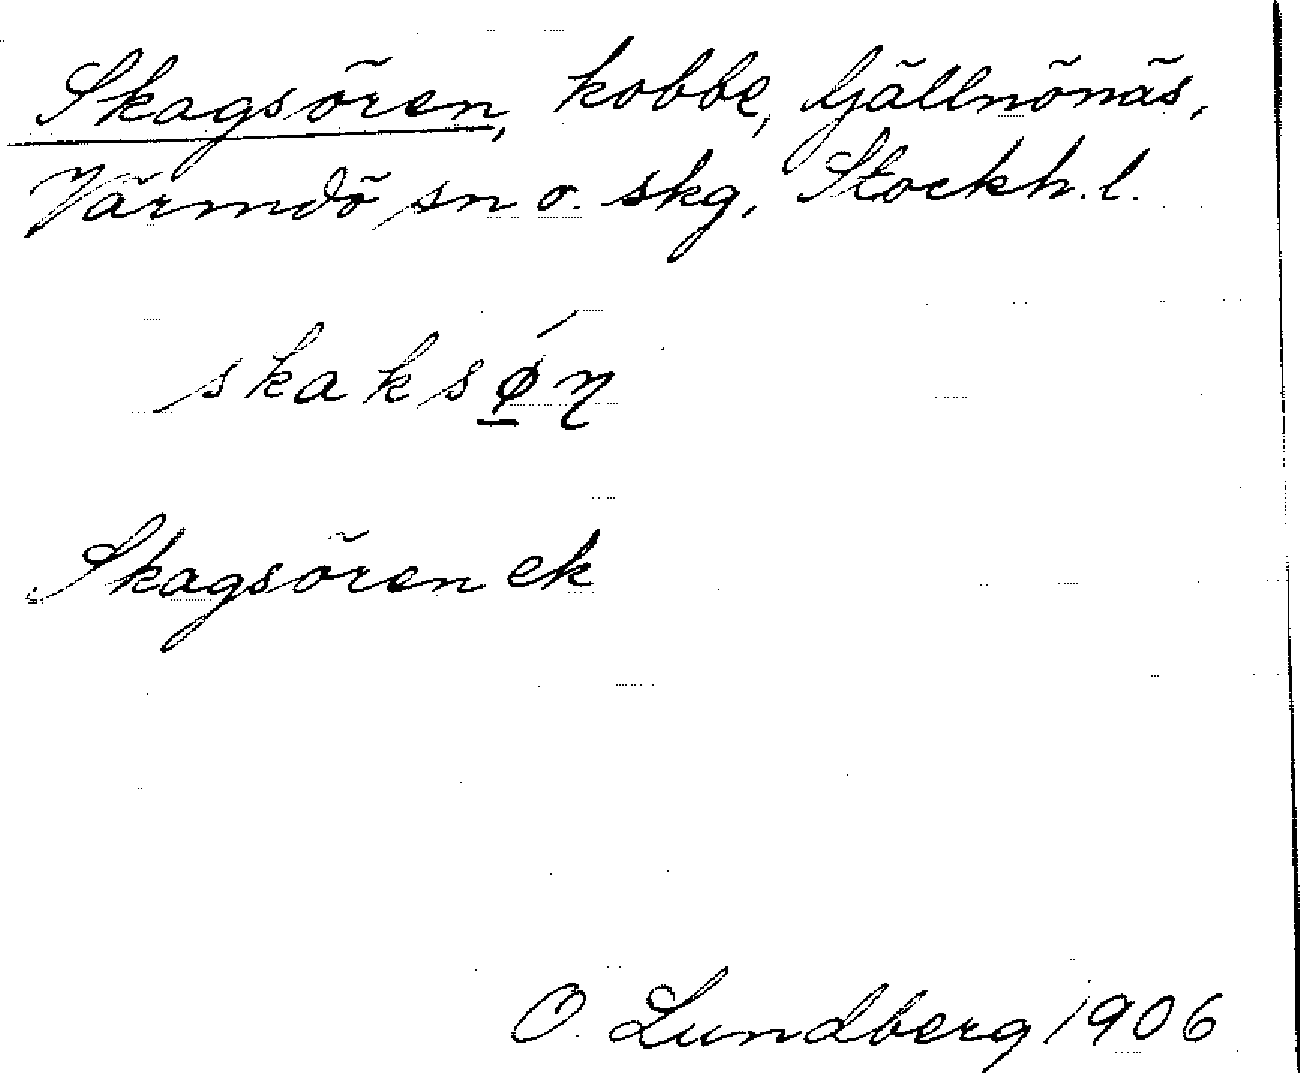 Skagsören, kobbe, Fjällnönäs,
Värmdö sn o. skg, Stockh. l.
skaksǿ̱ŋ
Skagsören ek
O. Lundberg 1906